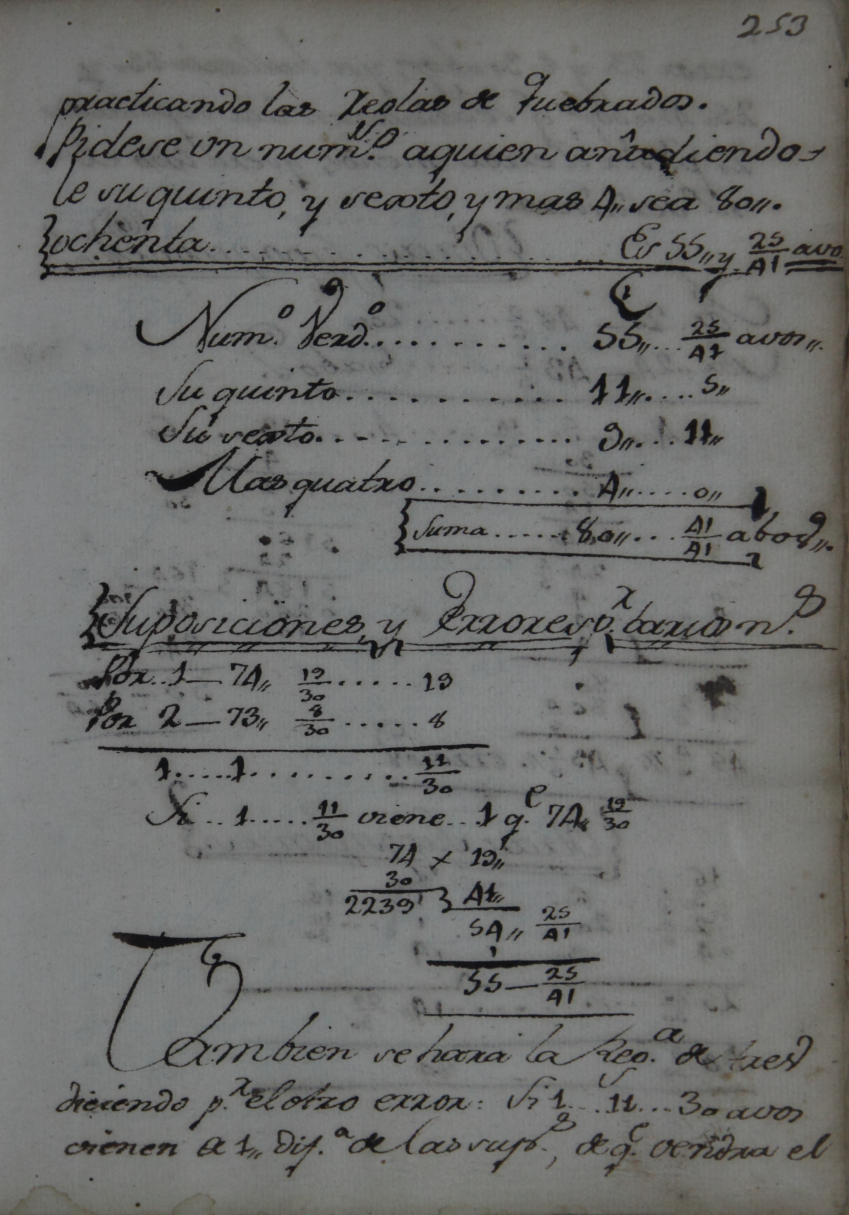 253
practicando las Reglas de Quebrados.
Pidese un num.º aquien añadiendo-
le su quinto, y sexto, y mas 4,, sea 80,,.
ochenta.......... Es 55,, y 25/41 avo
Num.º Verd.º............ 55,,... 25/41 avos,,.
Su quinto........... 11,,.... 5,,
Su sexto................ 9,,... 11,,
Mas quatro........... 4,,..... 0,,
Suma...... 80,,... 41/41 abos,,.
Suposiciones, y Errores p.r barios n.s
Por.. 1 — 74,, 19/30 ..... 19
Por 2 — 73,, 8/30 ..... 8
1.... 1......... 11/30
Si.. 1..... 11/30 viene.. 1 q.e 74,, 19/30
74 x 19,,
30
2239 41,,
54,, 25/41
1
55 — 25/41
Tambien se hara la Reg.a de tres
diciendo p.r el otro error: Si 1... 11... 30 avos
vienen a 1,, dif.a de las sup.s, de q.e vendra el